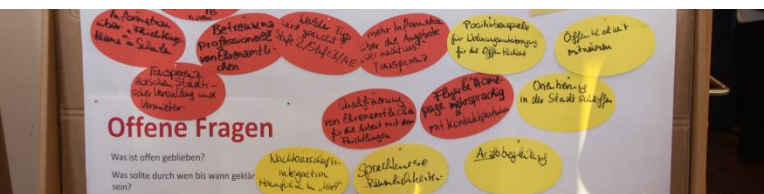 Information
über Flüchtlings-
thema in Schule
Betreuung
professionell
von Ehrenamtli-
chen
Welcher Typ
wird gesucht,
Stufe 2/Stufe 3/AE
mehr Information
über die Angebote
Transparenz
Positivbeispiele
für Wohnungsanbietung
für die Öffentlichkeit
Öffentlichkeit
motivieren
Transparenz
zwischen Städti-
scher Verwaltung und
Vermieter
Qualifizierung
von Ehrenamtlichen
für die Arbeit mit den
Flüchtlingen
Flyer bei Home-
page mehrsprachig
mit Kontaktpartner
Orientierung
in der Stadt schaffen
Offene Fragen
Was ist offen geblieben?
Was sollte durch wen bis wann geklär
sein?
Nachbarschafts-
integration
Sprachkurse
Arztbegleitung